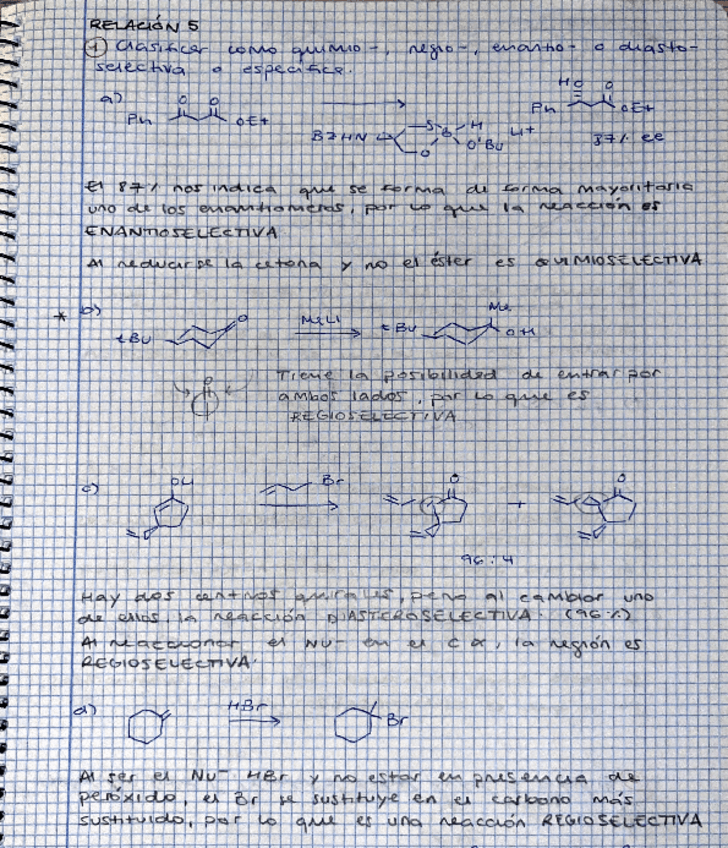 RELACIÓN 5
① Clasificar como quimio-, regio-, enantio- o diaste-
selectiva o específica.
a)
O O
Ph OEt
BzHN S B H Li+
O O^tBu
HO O
Ph OEt
87% ee
El 87% nos indica que se forma de forma mayoritaria
uno de los enantiómeros, por lo que la reacción es
ENANTIOSELECTIVA
Al reducirse la cetona y no el éster es QUIMIOSELECTIVA
* b)
tBu O
MeLi
tBu Me OH
Tiene la posibilidad de entrar por
ambos lados, por lo que es
REGIOSELECTIVA
c)
OLi
Br
O + O
96 : 4
Hay dos centros quirales, pero al cambiar uno
de ellos la reacción DIASTEROSELECTIVA. (96%)
Al reaccionar el Nu- en el Cα, la región es
REGIOSELECTIVA.
d)
HBr
Br
Al ser el Nu- HBr y no estar en presencia de
peróxido, el Br se sustituye en el carbono más
sustituido, por lo que es una reacción REGIOSELECTIVA